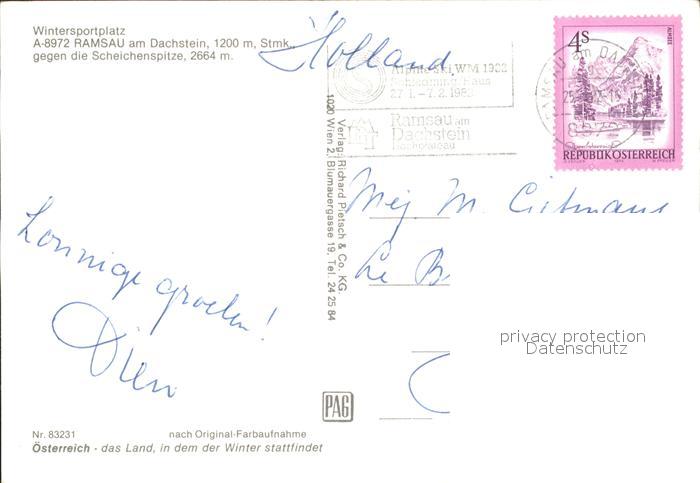 Wintersportplatz
A-8972 RAMSAU am Dachstein, 1200 m, Stmk.,
gegen die Scheichenspitze, 2664 m.
Holland
Alpine Ski WM 1982
Schladming/Haus
27.1.-7.2.1982
Ramsau am
Dachstein
4s
ALMSEE
REPUBLIK ÖSTERREICH
Verlag: Richard Pietsch & Co. KG.
1020 Wien 2, Blumauergasse 19, Tel. 24 25 84
Mej M.
Zonnige groeten!
Dien
privacy protection
Datenschutz
PAG
Nr. 83231
nach Original-Farbaufnahme
Österreich - das Land, in dem der Winter stattfindet